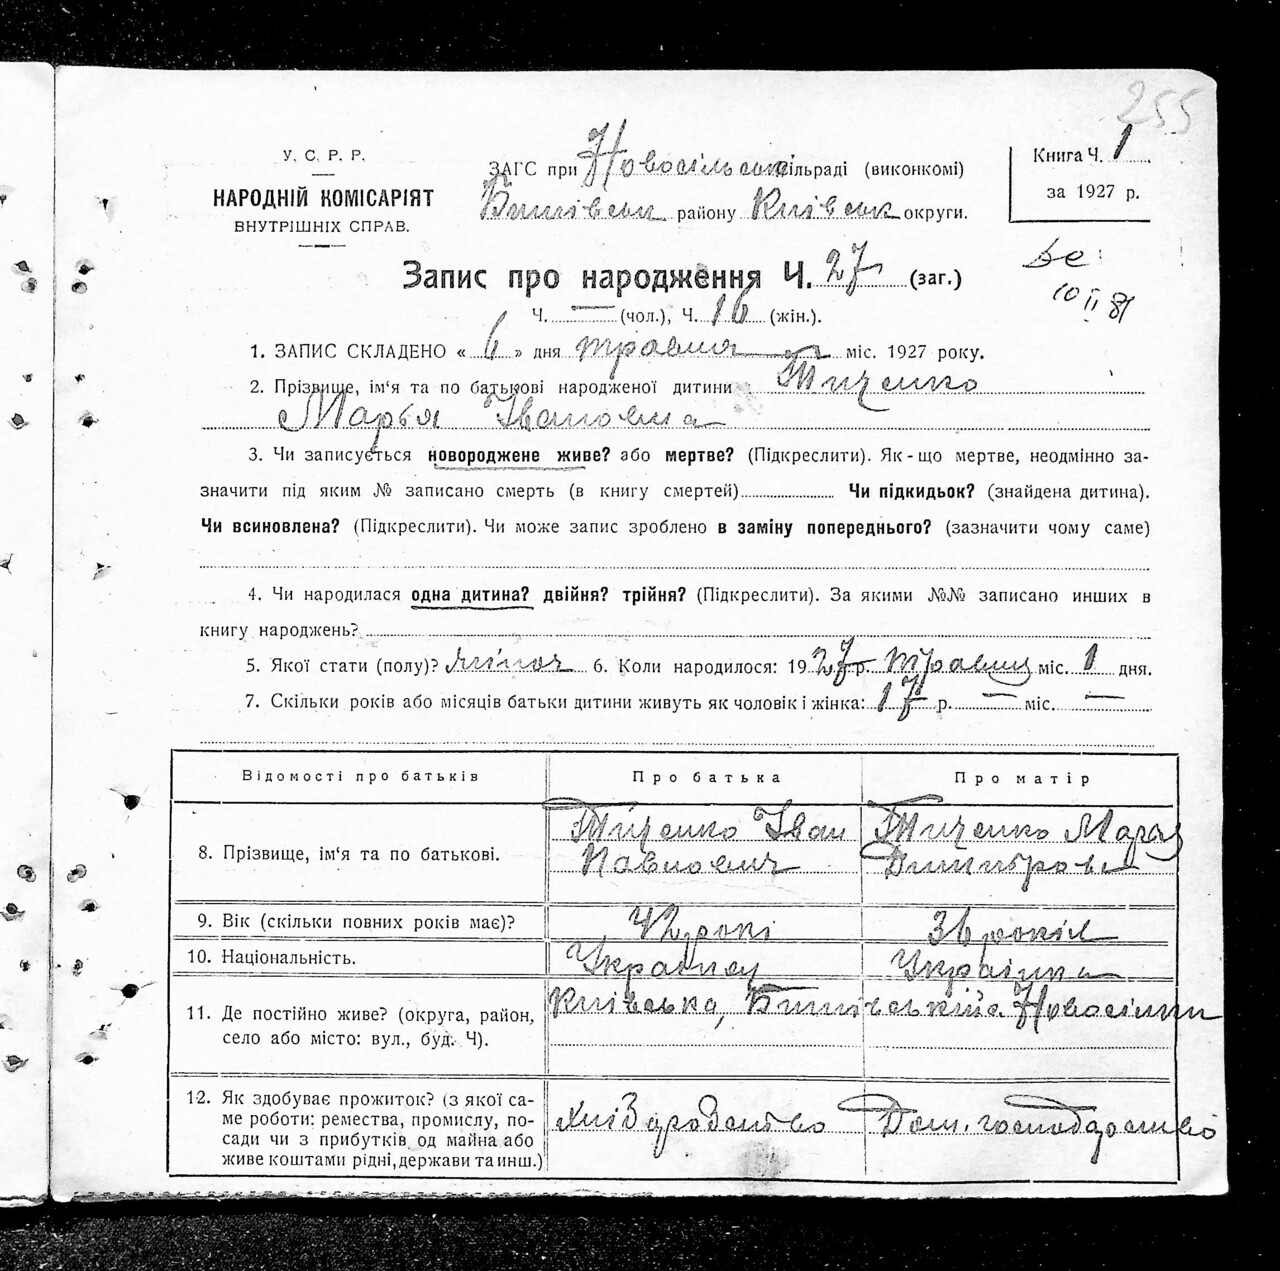 255
У. С. Р. Р.
НАРОДНІЙ КОМІСАРІЯТ
ВНУТРІШНІХ СПРАВ.
ЗАГС при Новосільській сільраді (виконкомі)
району Київськ округи.
Книга Ч. 1
за 1927 р.
10 II 81
Запис про народження Ч. 27 (заг.)
Ч. — (чол.), Ч. 16 (жін.).
1. ЗАПИС СКЛАДЕНО « 6 » дня травня міс. 1927 року.
2. Прізвище, ім'я та по батькові народженої дитини Тищенко
Марья Івановна
3. Чи записується новороджене живе? або мертве? (Підкреслити). Як-що мертве, неодмінно за-
значити під яким № записано смерть (в книгу смертей) Чи підкидьок? (знайдена дитина).
Чи всиновлена? (Підкреслити). Чи може запис зроблено в заміну попереднього? (зазначити чому саме)
4. Чи народилася одна дитина? двійня? трійня? (Підкреслити). За якими №№ записано инших в
книгу народжень?
5. Якої стати (полу)? жіноч 6. Коли народилося: 1927 р. травня міс. 1 дня.
7. Скільки років або місяців батьки дитини живуть як чоловік і жінка: 17 р. — міс. —
Відомості про батьків Про батька Про матір
8. Прізвище, ім'я та по батькові. Тищенко Іван Тищенко Марья
Павлович Дмитровн
9. Вік (скільки повних років має)? 42 рокі років
10. Національність. Українец Українка
11. Де постійно живе? (округа, район, Київська, Новосілки
село або місто: вул., буд. Ч).
12. Як здобуває прожиток? (з якої са-
ме роботи: ремества, промислу, по- Хлібородство Дом. господарство
сади чи з прибутків од майна або
живе коштами рідні, держави та инш.)